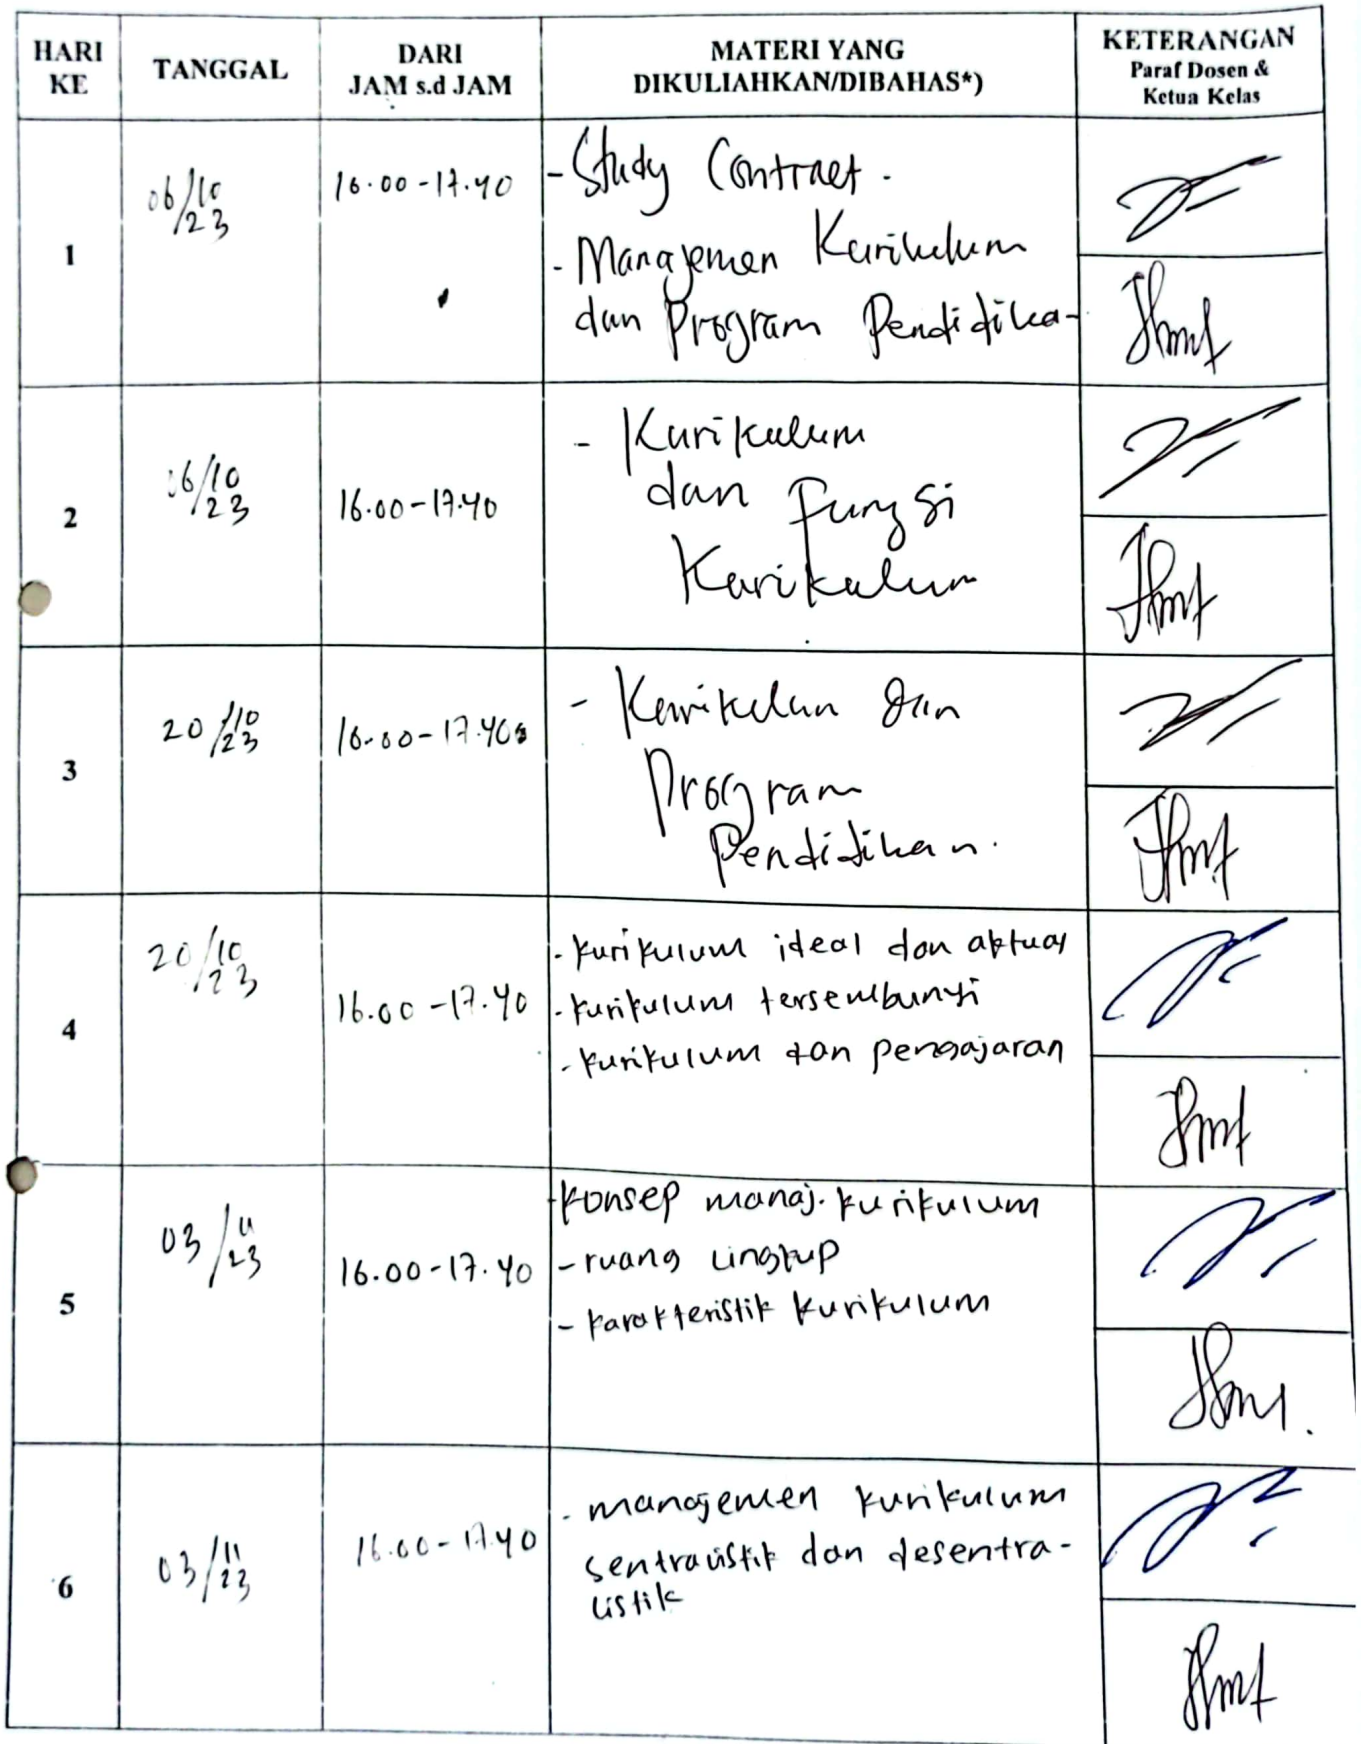 HARI KE
TANGGAL
DARI
JAM s.d JAM
MATERI YANG
DIKULIAHKAN/DIBAHAS*)
KETERANGAN
Paraf Dosen &
Ketua Kelas
1
06/10/23
16.00-17.40
- Study Contract.
- Manajemen Kurikulum
dan Program Pendidika-
2
06/10/23
16.00-17.40
- Kurikulum
dan Fungsi
Kurikulum
3
20/10/23
16.00-17.40
- Kurikulum dan
Program
Pendidikan.
4
20/10/23
16.00-17.40
- kurikulum ideal dan aktual
- kurikulum tersembunyi
- kurikulum dan pengajaran
5
03/11/23
16.00-17.40
- konsep manaj. kurikulum
- ruang lingkup
- karakteristik kurikulum
6
03/11/23
16.00-17.40
- manajemen kurikulum
sentralistik dan desentra-
listik